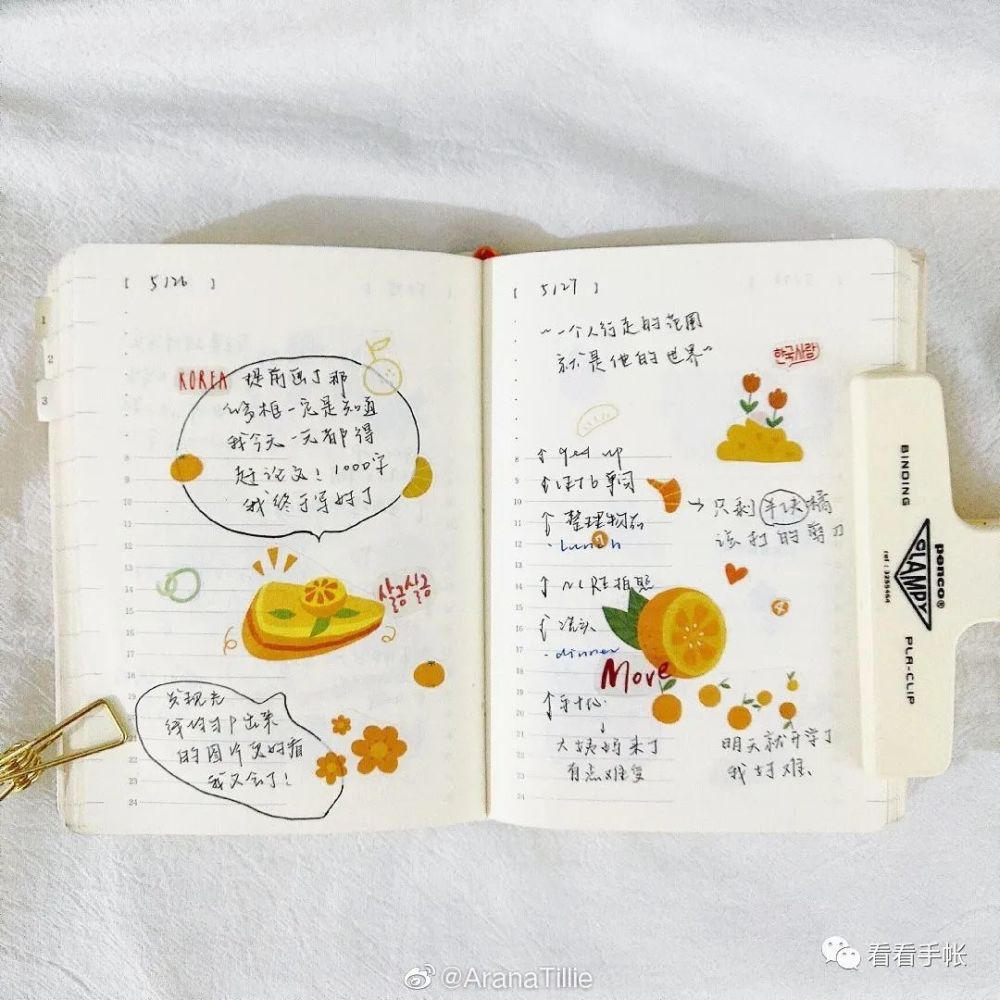 [ 5/26 ]
KOREA 提前画了那
相一定是知道
我今天一元都得
赶论文！1000字
我终于写好了
살금살금
发现先
出来
的图片更好看
我又会了！
[ 5/27 ]
~一个人行走的范围
就是他的世界~
한국사람
8
9
10
11
12
13
14
15
16
17
18
19
20
21
22
23
24
get up
单词
→ 只剩半块橘
整理物品
该打的剪刀
·Lunch
拍照
洗头
·dinner
Move
手帐
↓
大姨妈来了
有点难受
明天就开学了
我好难、
1
2
3
BINDING
penco®
CLAMPY
ref: 3255454
PLA-CLIP
看看手帐
@AranaTillie